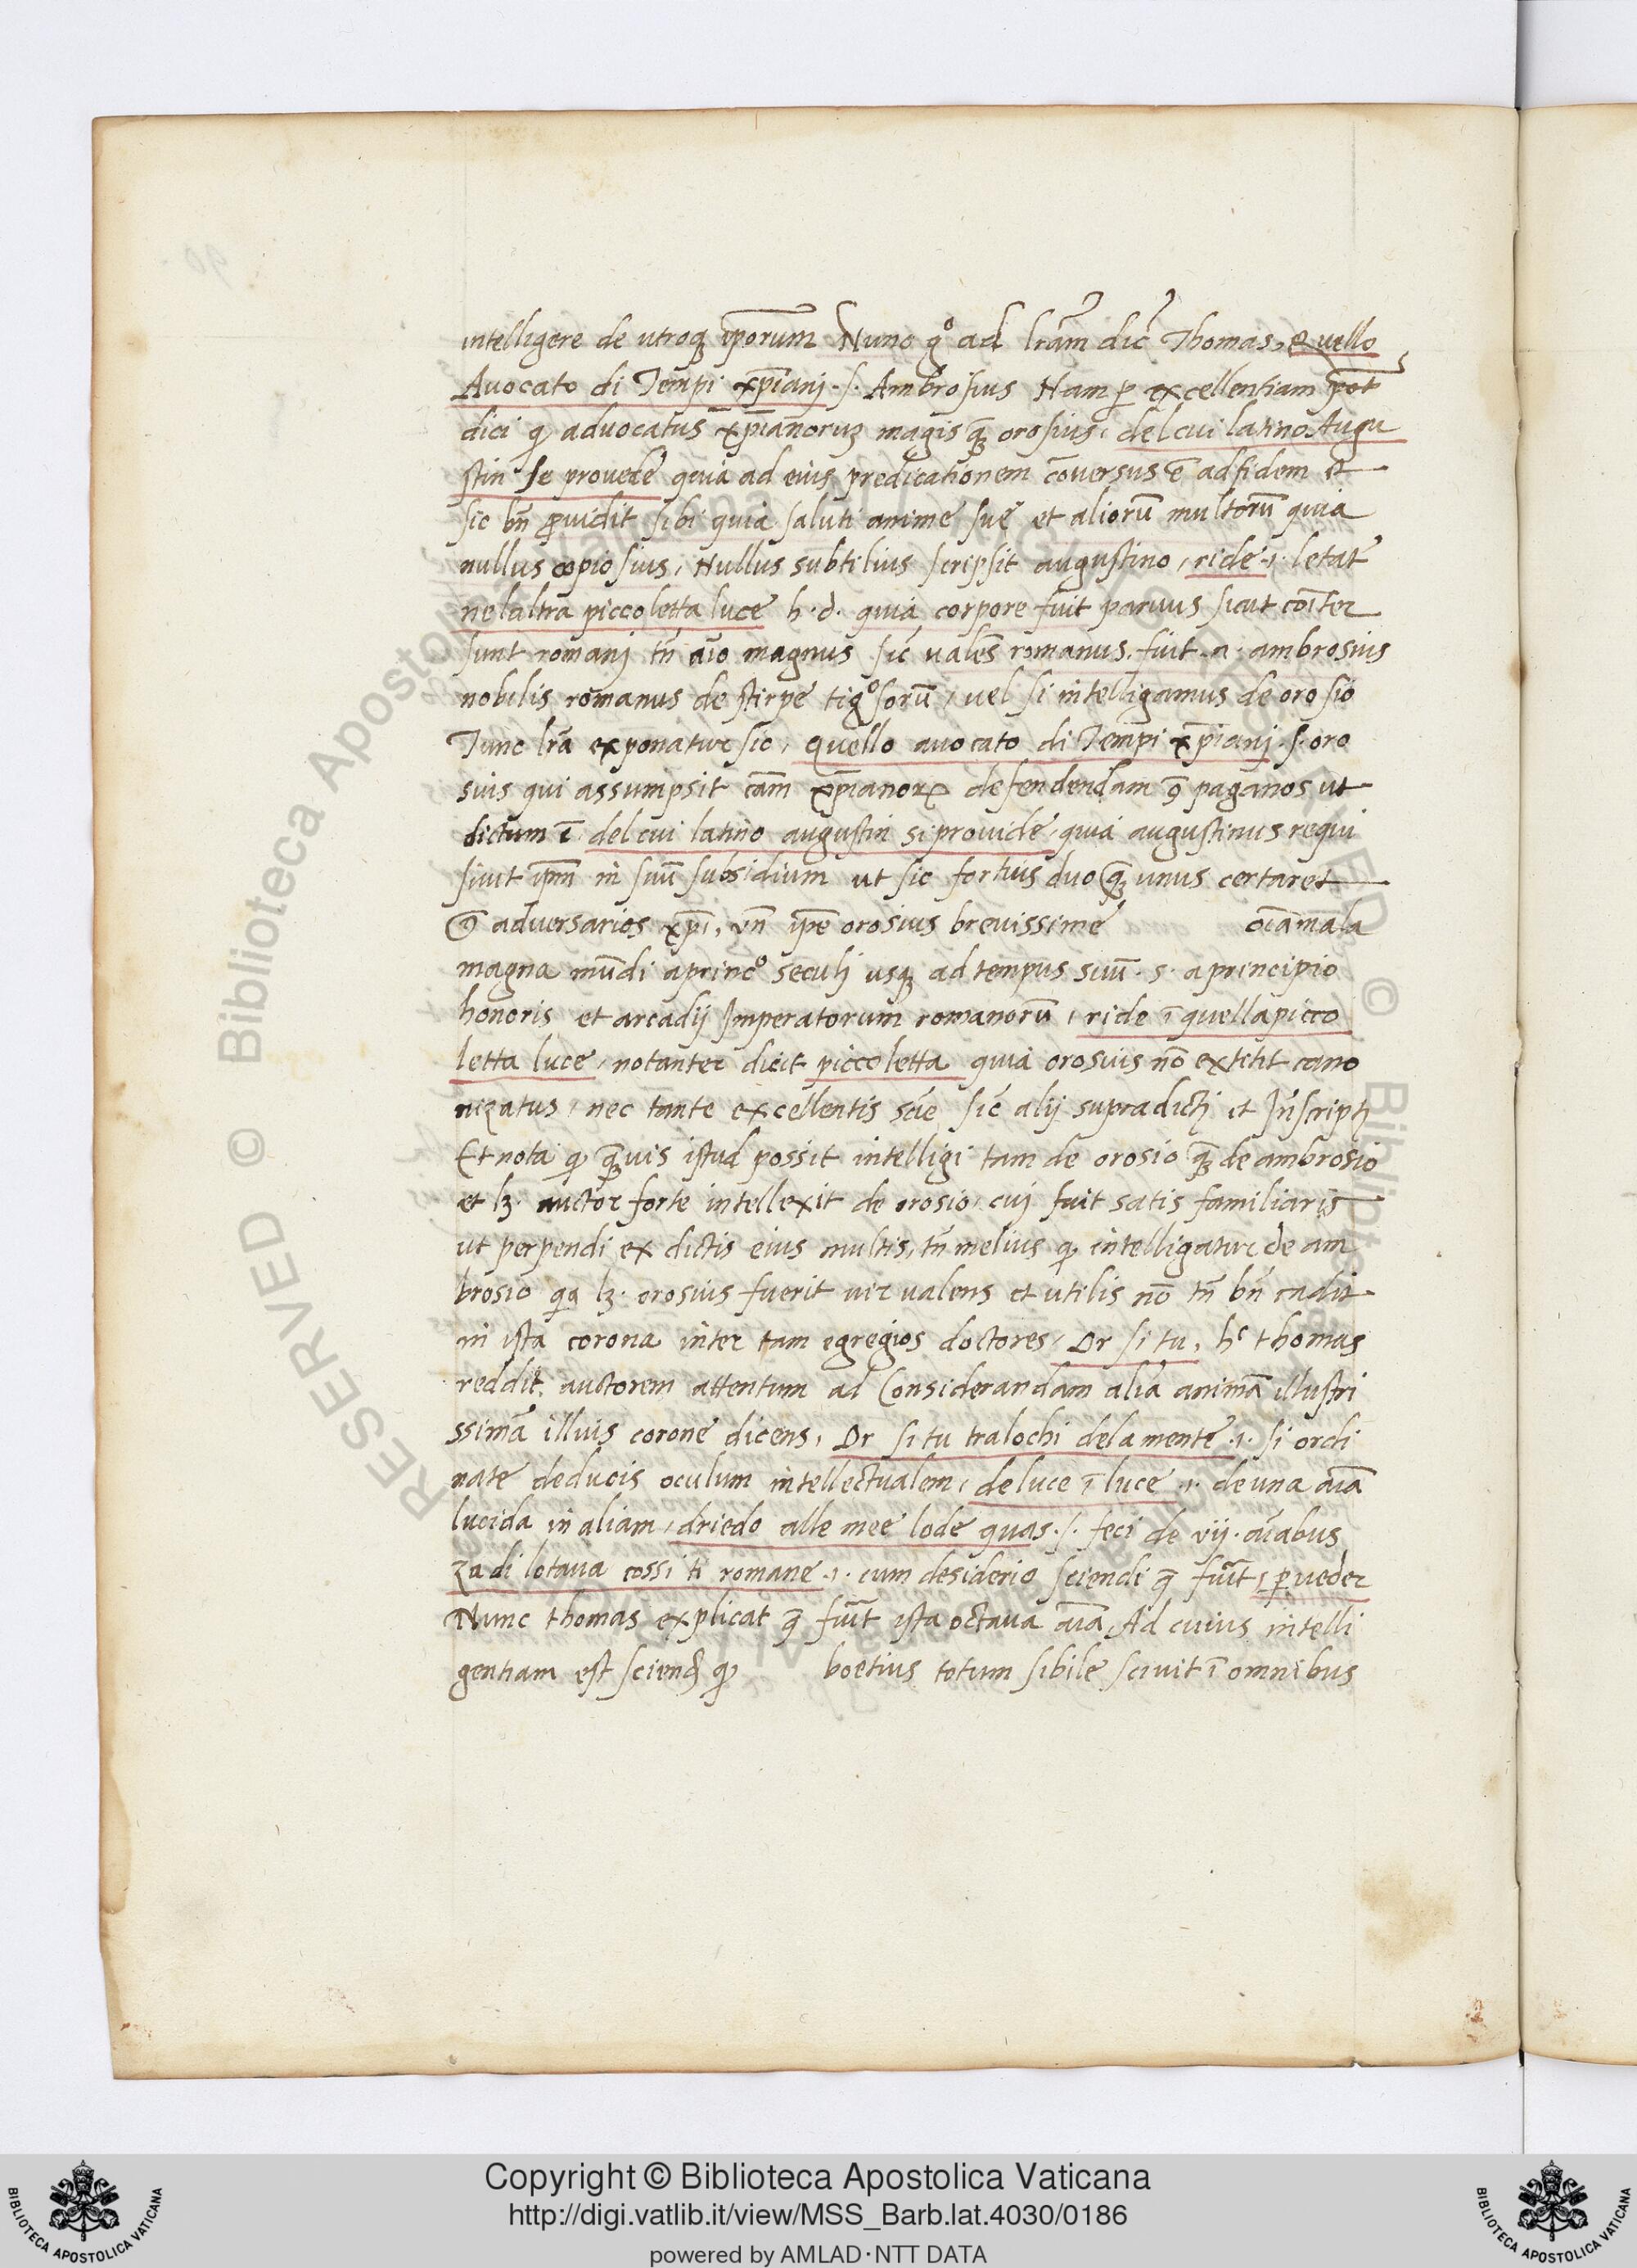 intelligere de utroq; ip̄orum Nunc gº ad lr̄am dic̄ Thomas, Quello
Avocato di Tempi xp̄ianj .s. Ambrosius Nam p excellentiam pot
dici q advocatus xp̄ianoruȝ magis q̄ȝ orosius, del cui latino Augu
stin se provede quia ad eius predicationem cōversus ē ad fidem et
sic bn̄ ꝓvidit sibi quia saluti anime sue et aliorū multorū quia
nullus copiosius, Nullus subtilius scripsit augustino, ride .i. letat̄
nelaltra piccoletta luce h.d. quia corpore fuit parvus sicut cōiter
sunt romanj tn̄ aīo magnus sic̄ vales romanus. fuit .n. ambrosius
nobilis romanus de stirpe tigºsorū, vel si intelligamus de orosio
Tunc lr̄a exponatur sic, quello avocato di Tempi xp̄ianj .s. oro
sius qui assumpsit cām xp̄ianoꝝ defendendam ꝯ paganos ut
dictum ē del cui latino augustin si provide, quia augustinus requi
sivit ip̄m in suū subsidium ut sic fortius duo q̄ȝ unus certaret
ꝯ adversarios xp̄i, vn̄ ip̄e orosius brevissime oīa mala
magna mūdi a princº seculj usq; ad tempus suū .s. a principio
honoris et arcadij Imperatorum romanorū, ride ī quella picco
letta luce, notanter dicit piccoletta quia orosius nō extitit cano
nizatus, nec tante excellentis scīe sic̄ alij supradictj et Ifrascriptj
Et nota q q̄ȝvis istud possit intelligi tam de orosio q̄ȝ de ambrosio
et lȝ. auctor forte intellexit de orosio, cuj fuit satis familiaris
ut perpendi ex dictis eius multis, tn̄ melius q intelligatur de am
brosio qa lȝ. orosius fuerit vir valens et utilis nō tn̄ bn̄ cadit
in ista corona inter tam egregios doctores, Or si tu, hc thomas
reddit auctorem attentum ad Considerandam aliā animā illustri
ssimā illius corone dicens, Or si tu tralochi dela mente .i. si ordi
nate deducis oculum intellectualem, de luce ī luce .i. de una aīa
lucida in aliam, driedo alle mee lode quas .s. feci de vij. aīabus
za di lotava cossi ti romane .i. cum desiderio sciende q̄ fuit, p veder
Nunc thomas explicat q̄ fuit ista octava aīa, Ad cuius intelli
gentiam est sciend q boetius totum sibile scivit ī omnibus
RESERVED © Biblioteca Apostolica Vaticana
Copyright © Biblioteca Apostolica Vaticana
http://digi.vatlib.it/view/MSS_Barb.lat.4030/0186
powered by AMLAD·NTT DATA
BIBLIOTECA APOSTOLICA VATICANA
BIBLIOTECA APOSTOLICA VATICANA